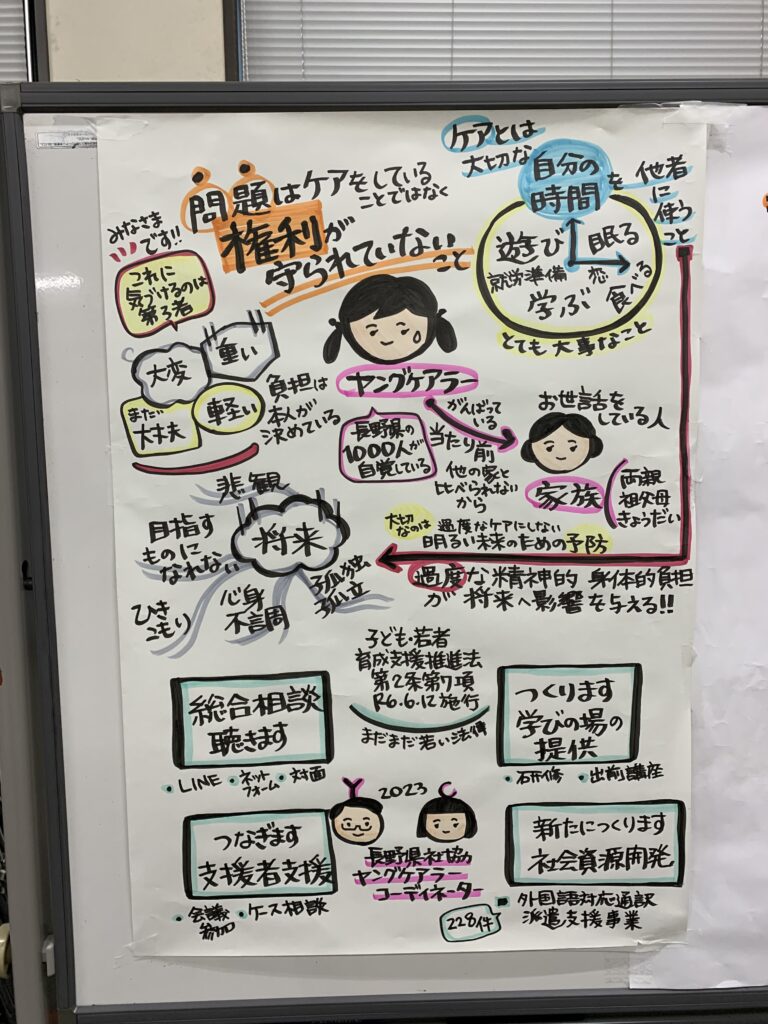 ケアとは
大切な
自分の
時間を
他者
に
伴う
こと
問題はケアをしている
ことではなく
権利が
守られていない
こと
みなさま
です!!
これに
気づけるのは
第3者
遊び
眠る
就労準備
恋
学ぶ
食べる
とても大事なこと
大変
重い
まだ
大丈夫
軽い
負担は
本人が
決めている
ヤングケアラー
長野県の
1000人が
自覚している
がんばって
いる
当たり前
他の家と
比べられない
から
お世話を
している人
家族
両親
祖父母
きょうだい
悲観
目指す
ものに
なれない
将来
ひき
こもり
心身
不調
孤独
孤立
大切
なのは
過度なケアにしない
明るい未来のための予防
過度な精神的 身体的負担
が 将来へ影響を与える!!
子ども・若者
育成支援推進法
第2条第7項
R6.6.12施行
まだまだ若い法律
総合相談
聴きます
・LINE ・ネット
フォーム ・対面
つくります
学びの場の
提供
・研修 ・出前講座
つなぎます
支援者支援
・会議
参加 ・ケース相談
2023
長野県社協
ヤングケアラー
コーディネーター
228件
新たにつくります
社会資源開発
外国語対応通訳
派遣支援事業